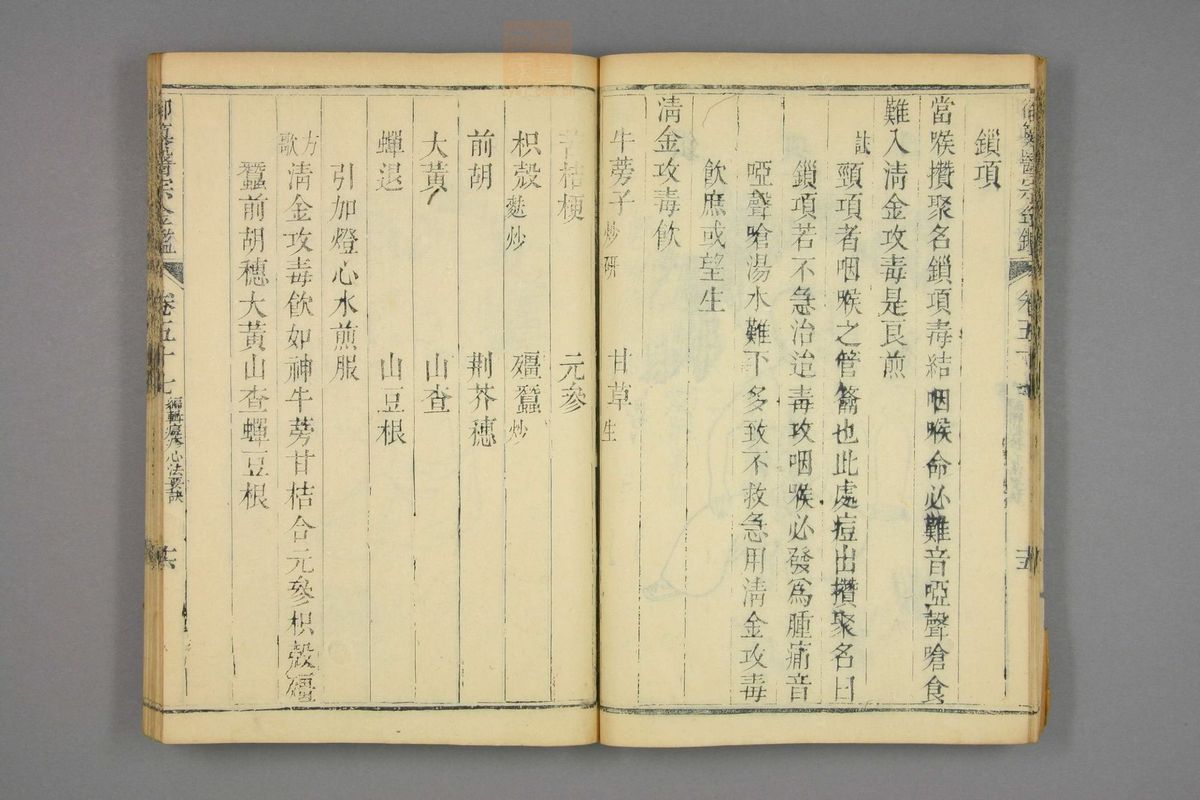 鎖項
當喉攢聚名鎖項毒結咽喉命必難音啞聲嗆食
難入清金攻毒是良煎
註 頸項者咽喉之管籥也此處痘出攢聚名曰
鎖項若不急治迨毒攻咽喉必發為腫痛音
啞聲嗆湯水難下多致不救急用清金攻毒
飲庶或望生
清金攻毒飲
牛蒡子炒研 甘草生
苦桔梗 元參
枳殼麩炒 殭蠶炒
前胡 荆芥穗
大黃 山查
蟬退 山豆根
引加燈心水煎服
方歌 清金攻毒飲如神牛蒡甘桔合元參枳殼殭
蠶前胡穗大黃山查蟬豆根
御纂醫宗金鑑 卷五十七 編輯痘疹心法要訣 六